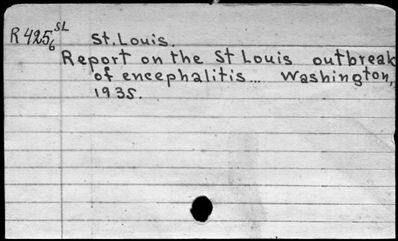 R 425 SL St. Louis.
6
Report on the St Louis outbreak
of encephalitis... Washington,
1935.